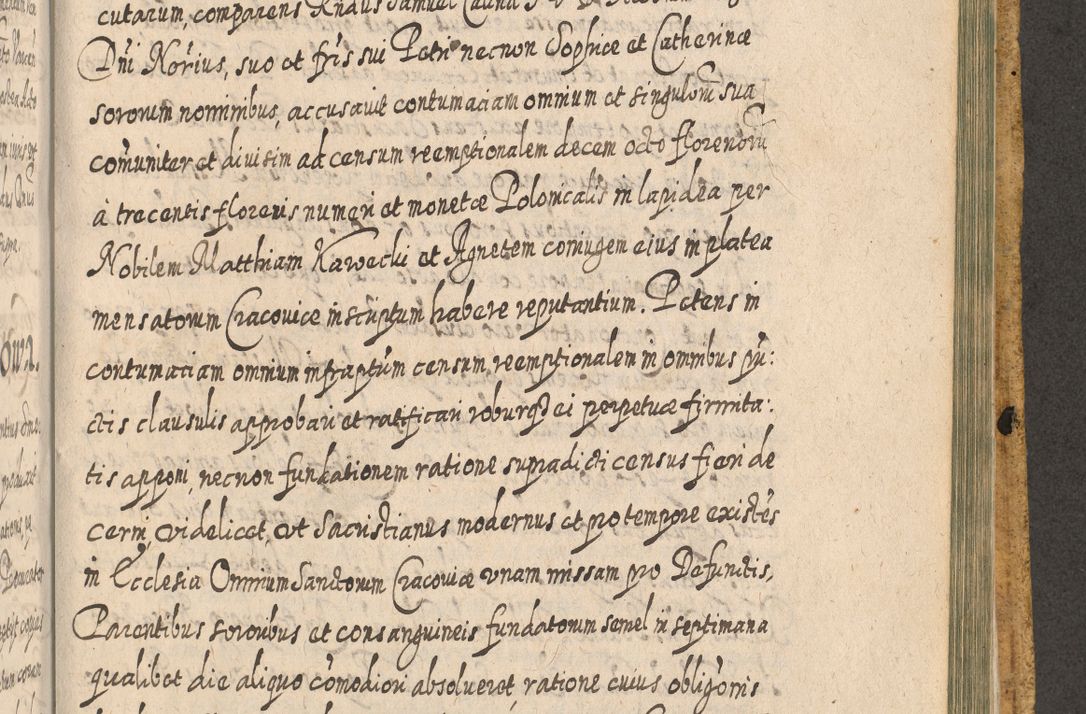 cutarum, comparens Kndus Samuel
Dni Norius, suo et fris sui Petri necnon Sophiæ et Catherinæ
sororum nominibus, accusavit contumaciam omnium et singulorũ sua
com̃uniter et divisim ad censum reemptionalem decem octo florenorũ
à trecentis florenis numeri et monetæ Polonicalis in lapidea per
Nobilem Matthiam Kawecki et Agnetem coniugem eius in platea
mensatorum Cracoviæ inscriptum habere reputantium. Petens in
contumaciam omnium infraptũm censum reemptionalem in omnibus pũ:
ctis clausulis approbari et ratificari roburqȝ ei perpetuæ firmita:
tis apponi, necnon fundationem ratione supradicti census fieri de
cerni, videlicet, ut Sacristianus modernus et pro tempore existẽs
in Ecclesia Omnium Sanctorum Cracoviæ unam missam pro Defunctis,
Parentibus sororibus et consanguineis fundatorum semel in septimana
qualibet die aliquo com̃odiori absolveret, ratione cuius obligõnis